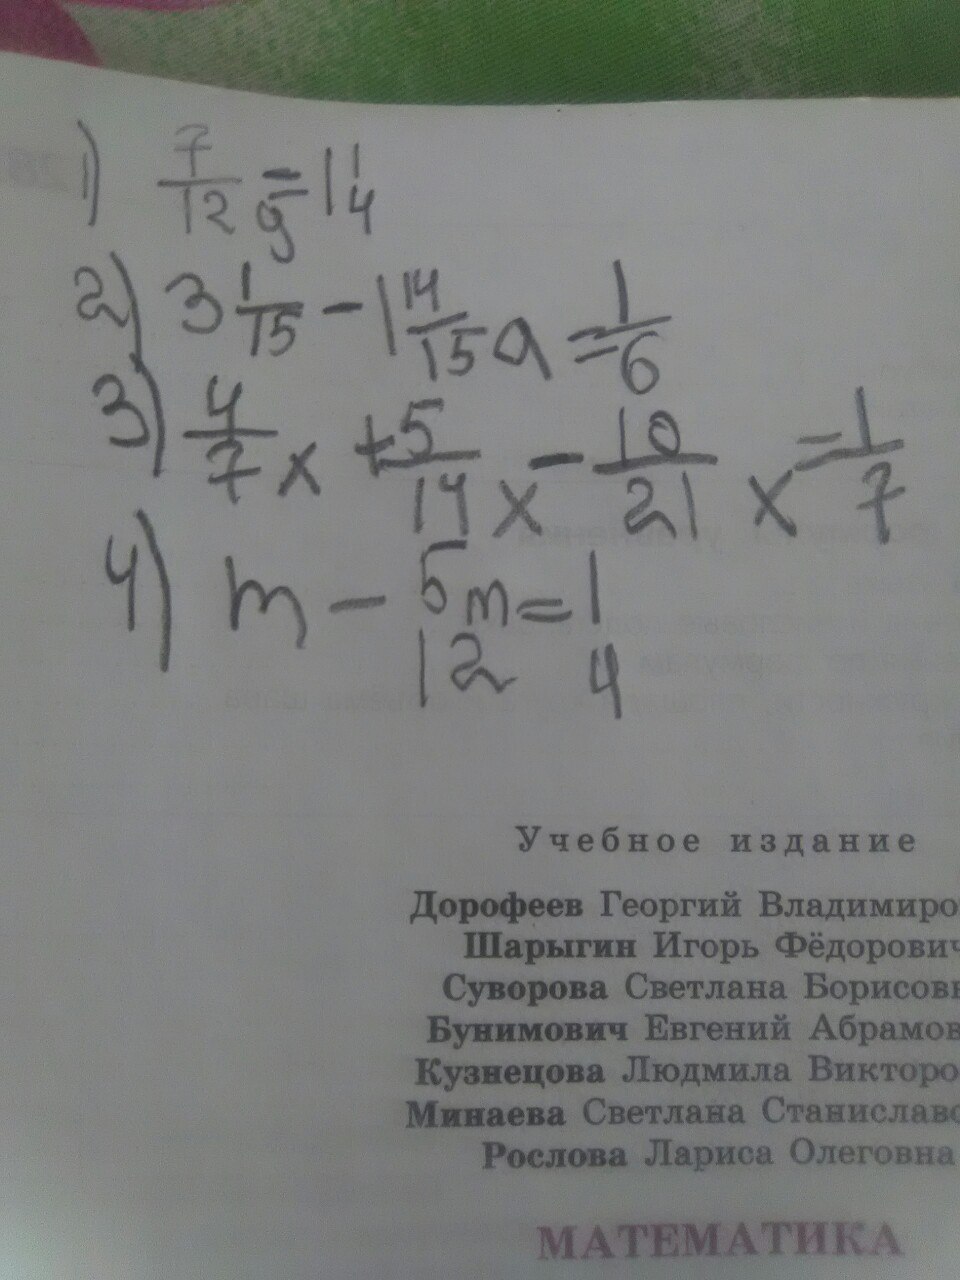 1) 7/12 g = 1 1/4
2) 3 1/15 - 1 14/15 a = 1/6
3) 4/7 x + 5/14 x - 10/21 x = 1/7
4) m - 5/12 m = 1/4
Учебное издание
Дорофеев Георгий Владимиро
Шарыгин Игорь Фёдорович
Суворова Светлана Борисовн
Бунимович Евгений Абрамов
Кузнецова Людмила Викторо
Минаева Светлана Станиславо
Рослова Лариса Олеговна
МАТЕМАТИКА